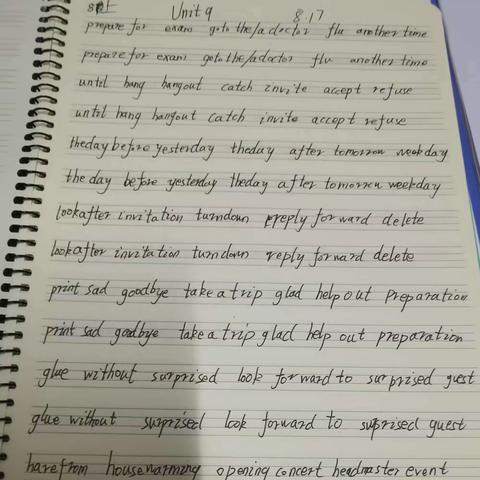 8上 Unit 9 8.17
prepare for exam go to the/a doctor flu another time
prepare for exam go to the/a doctor flu another time
until hang hangout catch invite accept refuse
until hang hangout catch invite accept refuse
theday before yesterday theday after tomorrow weekday
the day before yesterday theday after tomorrow weekday
lookafter invitation turndown preply forward delete
lookafter invitation turndown reply forward delete
print sad goodbye take a trip glad help out preparation
print sad goodbye take a trip glad help out preparation
glue without surprised look forward to surprised guest
glue without surprised look forward to suprised guest
hare from housewarming opening concert headmaster event